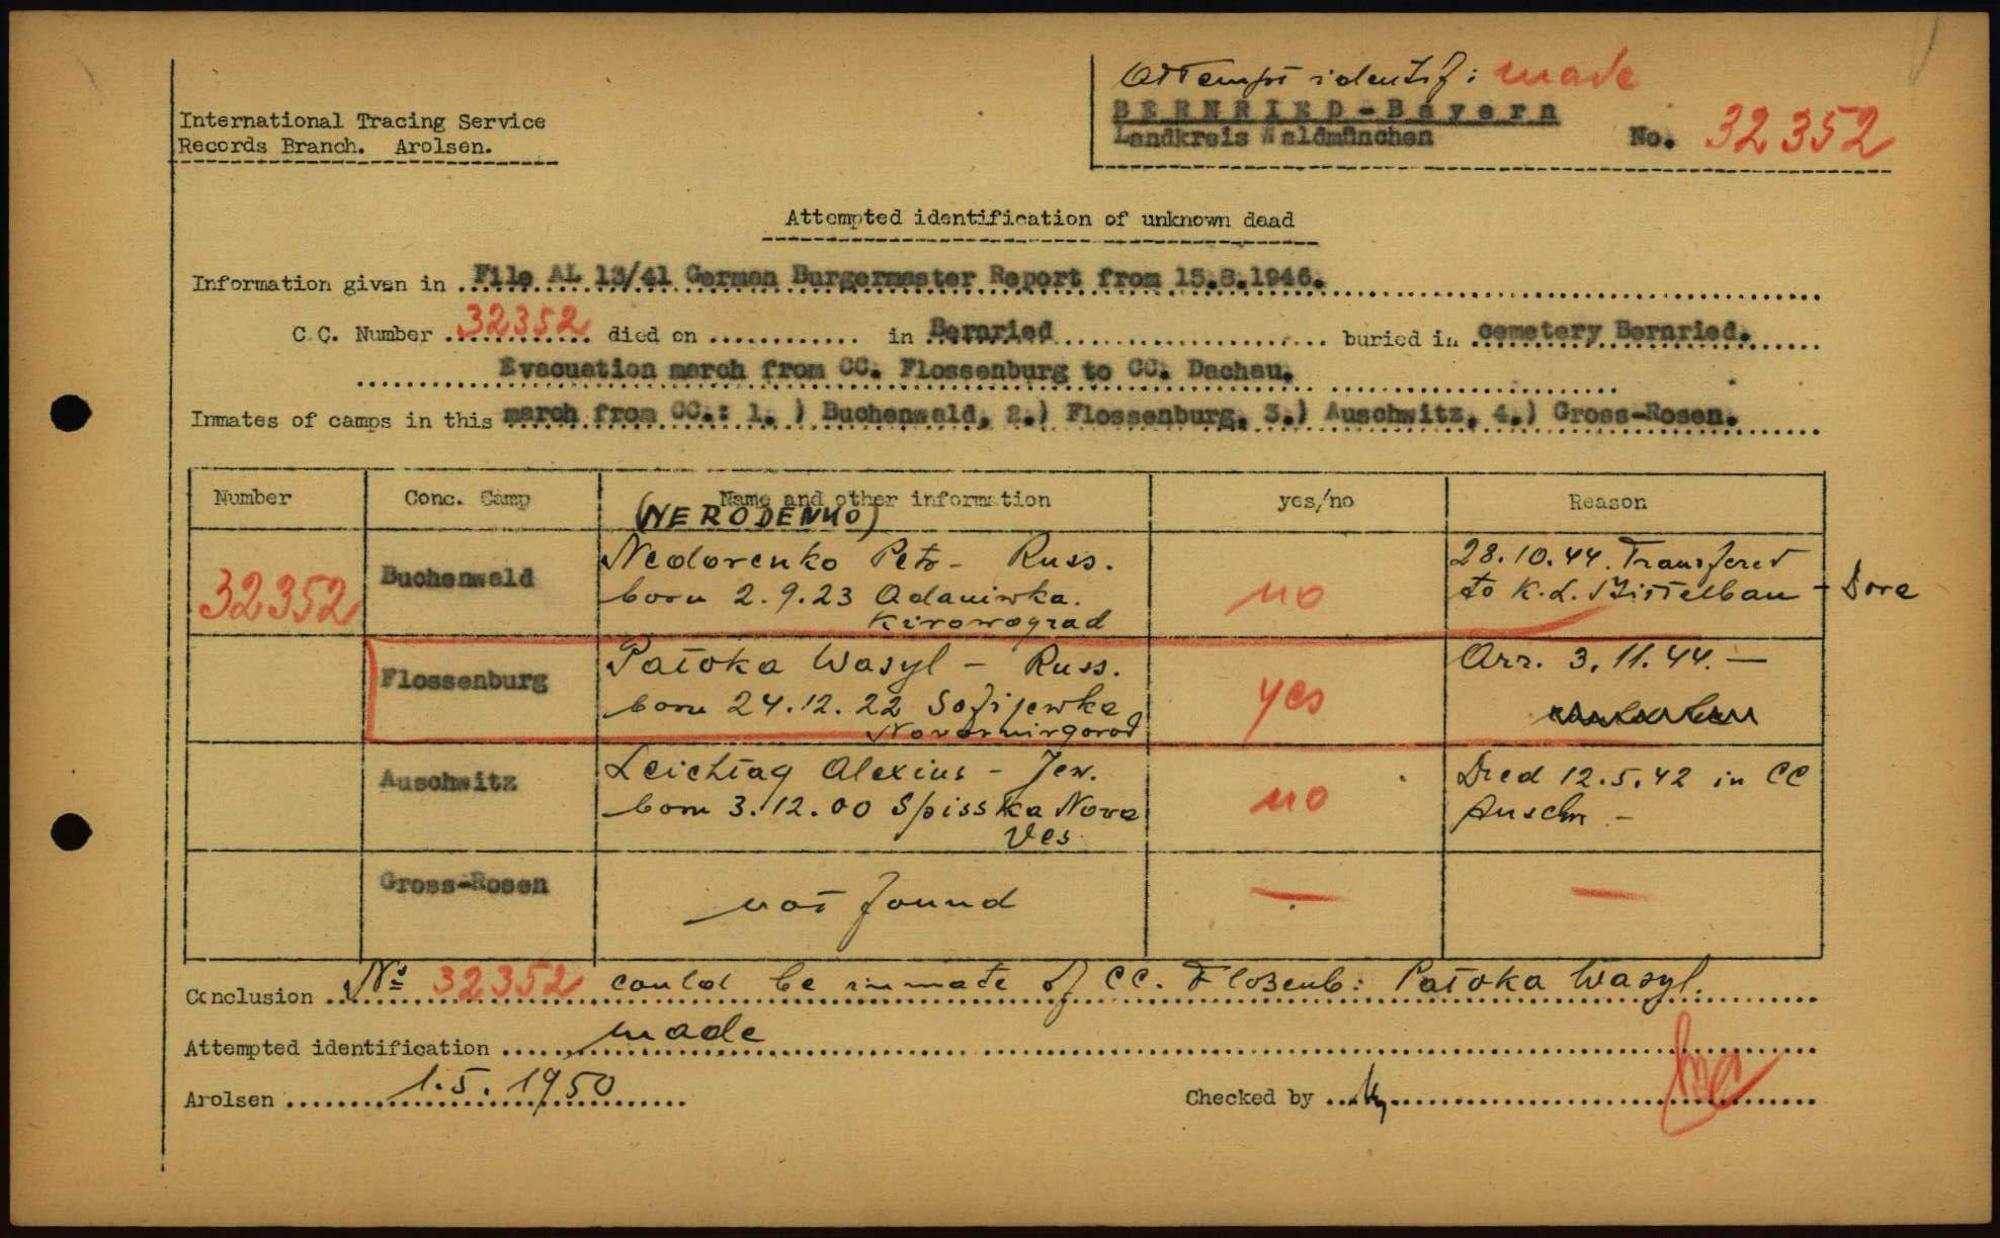 Attempt identif: made
BERNRIED-Bayern
Landkreis Waldmünchen No. 32352
International Tracing Service
Records Branch. Arolsen.
Attempted identification of unknown dead
Information given in File AL 13/41 German Burgermaster Report from 15.8.1946.
C.C. Number 32352 died on in Bernried buried in cemetery Bernried.
Evacuation march from CC. Flossenburg to CC. Dachau.
Inmates of camps in this march from CC.: 1. ) Buchenwald, 2.) Flossenburg, 3.) Auschwitz, 4.) Gross-Rosen.
Number Conc. Camp Name and other information yes/no Reason
(NERODENKO)
32352 Buchenwald Nedorenko Petr - Russ. no 28.10.44. Transferet
born 2.9.23 Adaniwka. to K.L. Mittelbau - Dora
Kirowograd
Flossenburg Patoka Wasyl - Russ. yes Arr. 3.11.44. -
born 24.12.22 Sofijewka
Nowomirgorod
Auschwitz Leichtag Alexius - Jew. no Died 12.5.42 in CC
born 3.12.00 Spisska Nova Auschw. -
Ves
Gross-Rosen not found - -
Conclusion No 32352 could be inmate of CC. Flossenb: Patoka Wasyl.
Attempted identification made
Arolsen 1.5.1950 Checked by